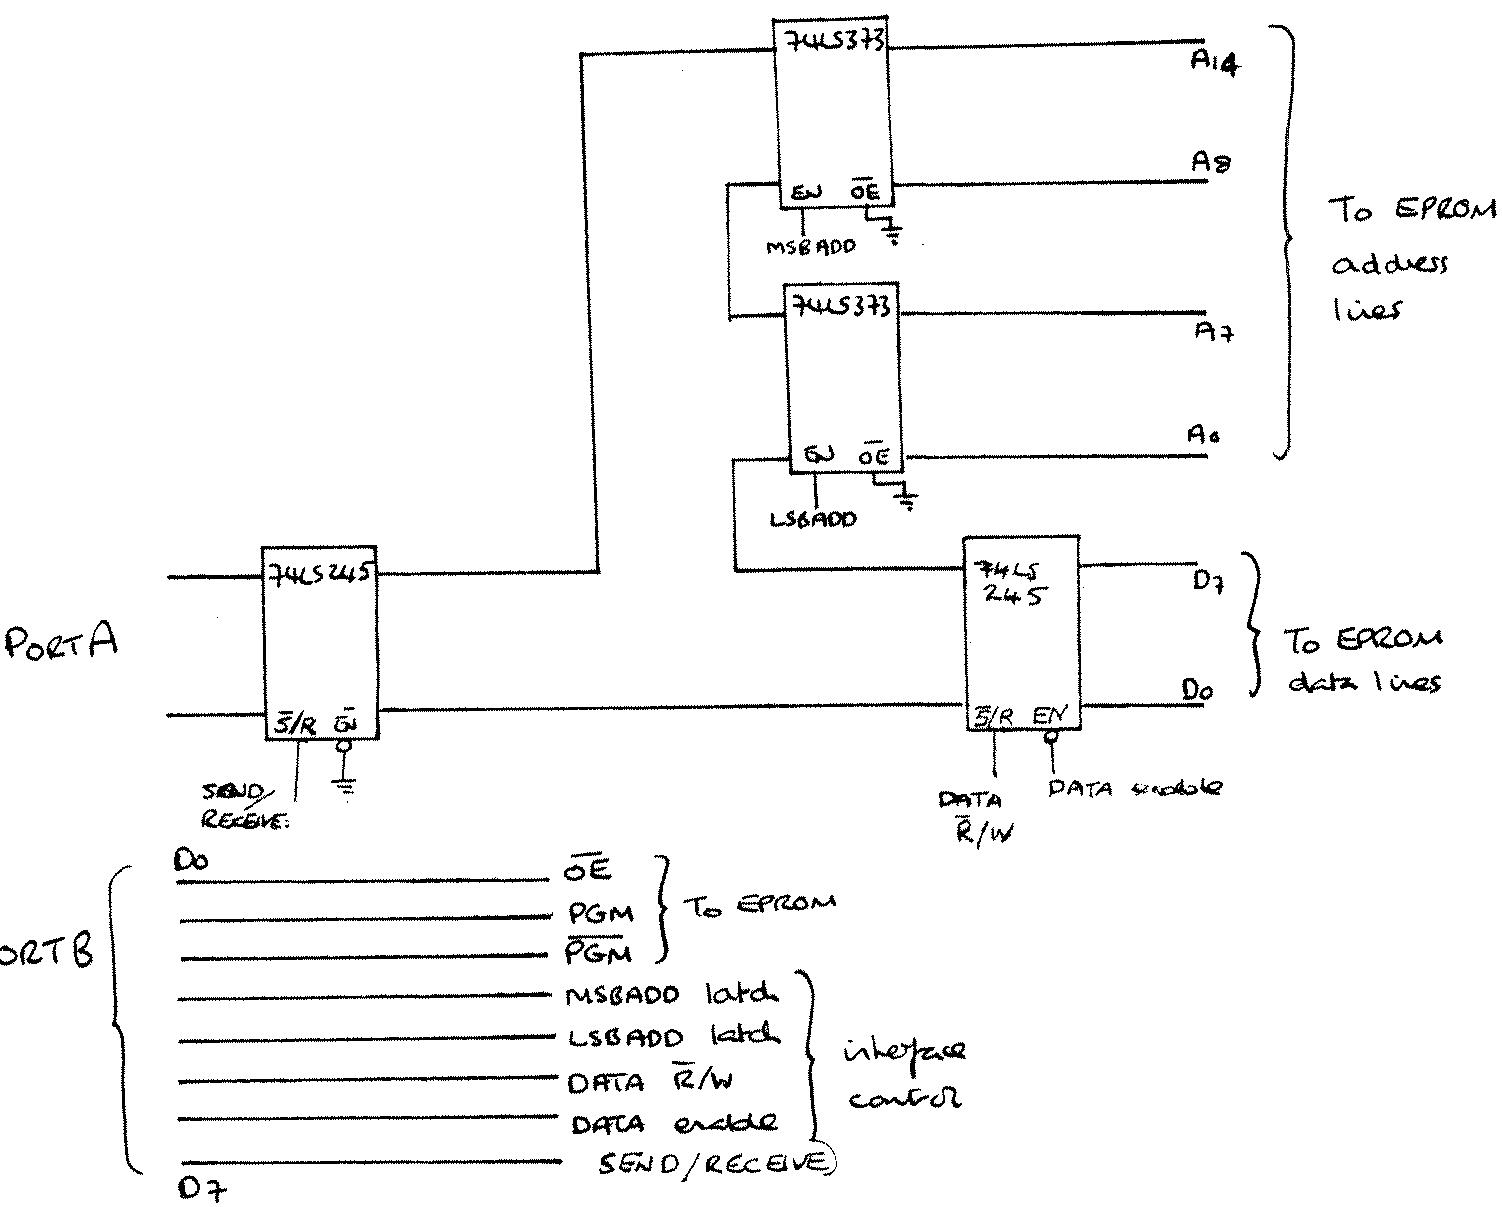 74LS373
A14
A8
EN O̅E̅
MSBADD
To EPROM
address
lines
74LS373
A7
A0
EN O̅E̅
LSBADD
74LS245
PORTA
S̅/R E̅N̅
SEND/
RECEIVE.
74LS
245
D7
D0
S̅/R EN
DATA
R̅/W
DATA enable
To EPROM
data lines
D0
O̅E̅
PGM
P̅G̅M̅
To EPROM
ORTB
MSBADD latch
LSBADD latch
DATA R̅/W
DATA enable
SEND/RECEIVE
interface
control
D7